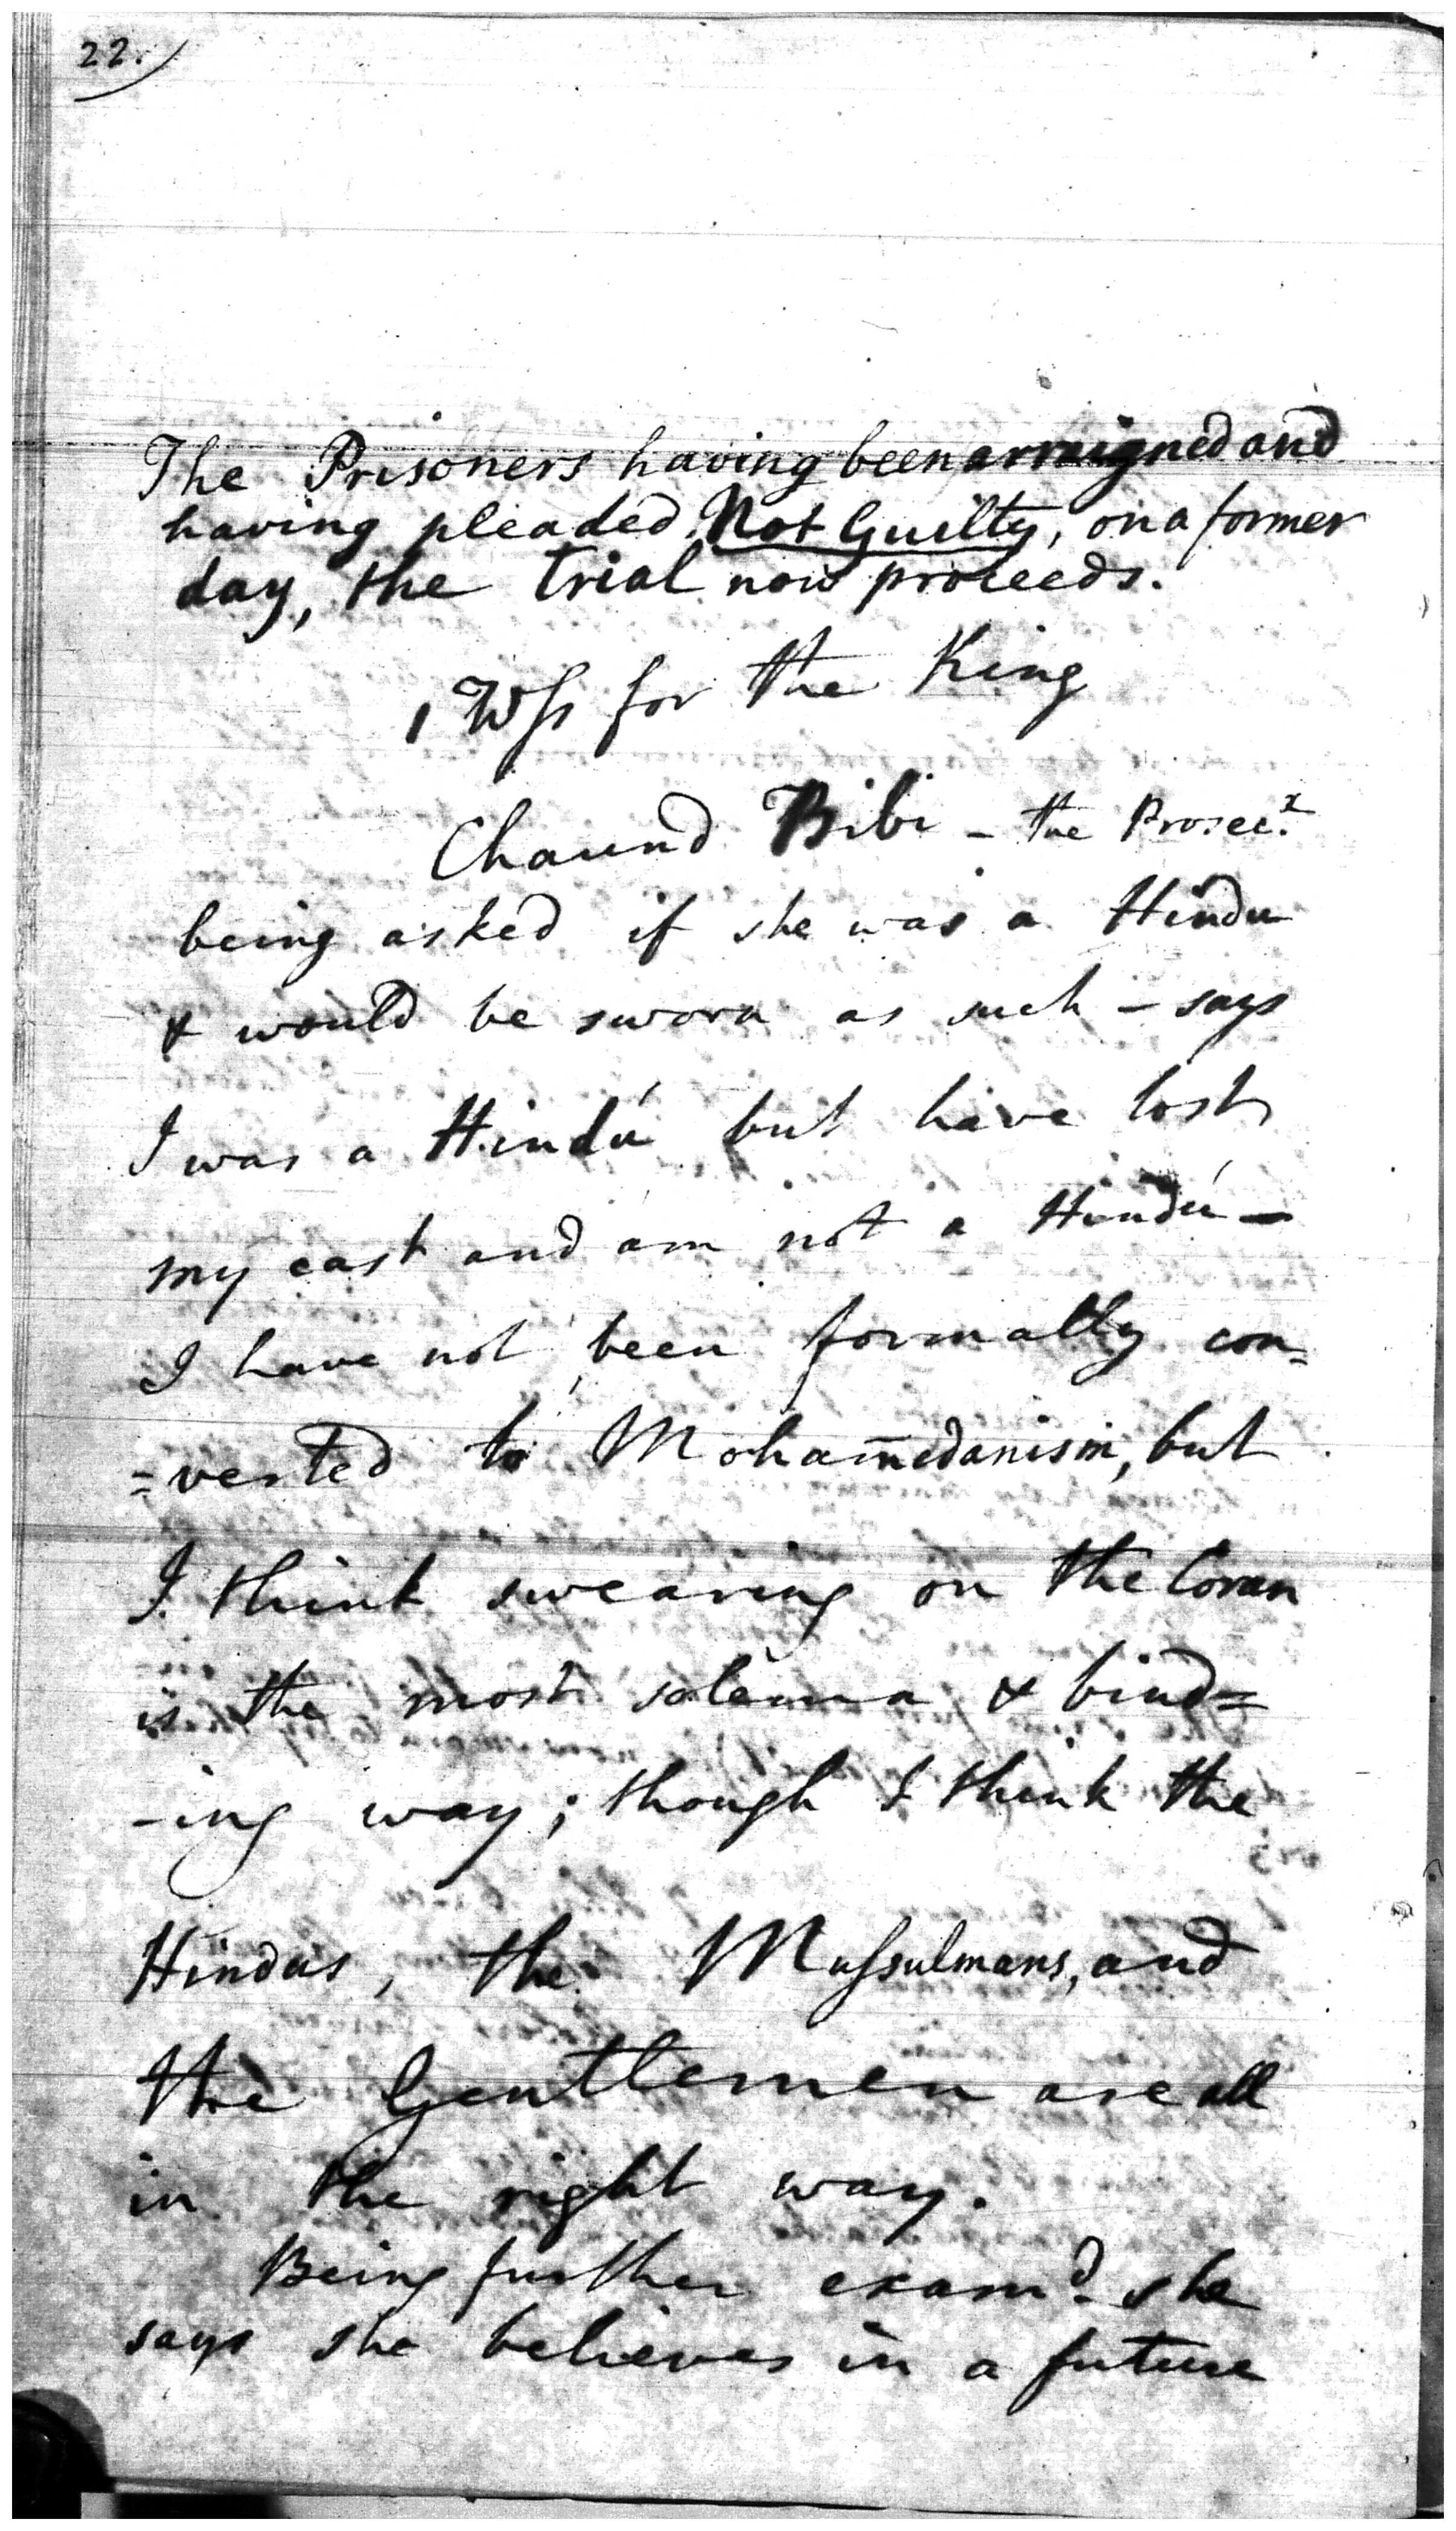 22.
The Prisoners having been arraigned and
having pleaded Not Guilty, on a former
day, the trial now proceeds.
1 Wſs for the King
Chaund Bibi - the Prosec.x
being asked if she was a Hindu
& would be sworn as such - says
I was a Hindú but have lost
my cast and am not a Hindú -
I have not been formally con=
=verted to Moham̄edanism, but
I think swearing on the Coran
is the most solemn & bind=
-ing way; though I think the
Hindus, the Muſsulmans, and
the Gentlemen are all
in the right way.
Being further exam.d she
says she believes in a future